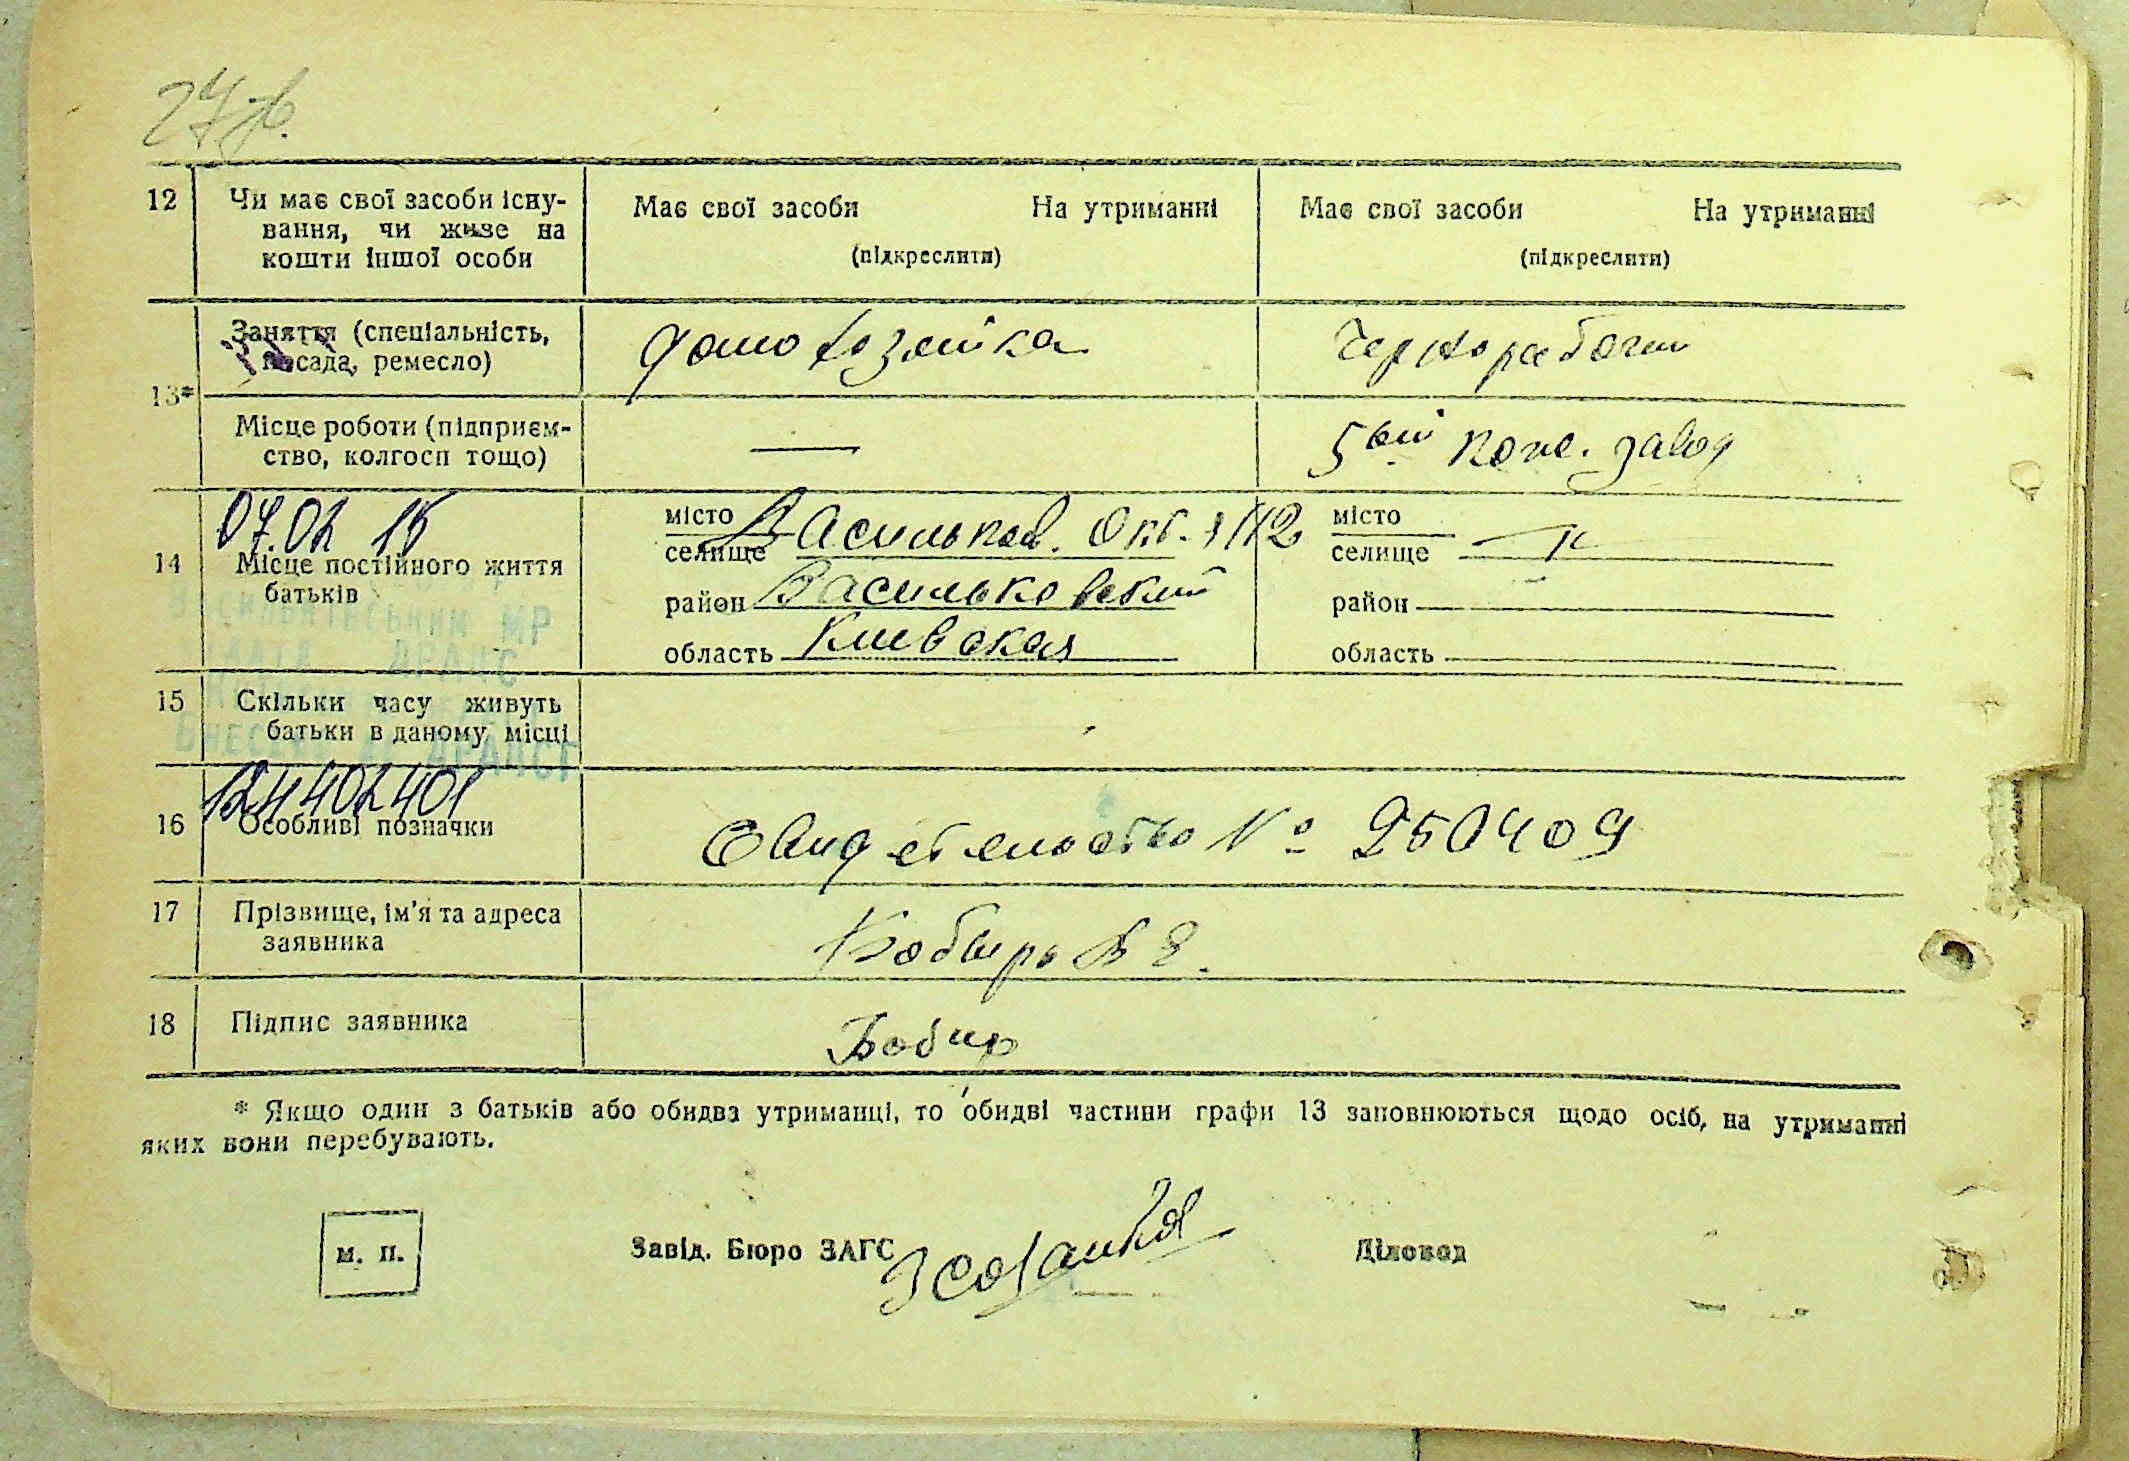 12 Чи має свої засоби існу-
вання, чи живе на
кошти іншої особи
Має свої засоби На утриманні
(підкреслити)
Має свої засоби На утриманні
(підкреслити)
13*
Заняття (спеціальність,
посада, ремесло)
домохозяйка
Чернорабочий
Місце роботи (підприєм-
ство, колгосп тощо)
—
5ый кож. завод
07.02 15
14 Місце постійного життя
батьків
місто
селище Васильков. Окт.
район Васильковский
область Киевская
місто
селище
район
область
15 Скільки часу живуть
батьки в даному місці
16 Особливі позначки
Свидетельство № 250409
17 Прізвище, ім'я та адреса
заявника
18 Підпис заявника
* Якщо один з батьків або обидва утриманці, то обидві частини графи 13 заповнюються щодо осіб, на утриманні
яких вони перебувають.
м. п.
Завід. Бюро ЗАГС
Діловод